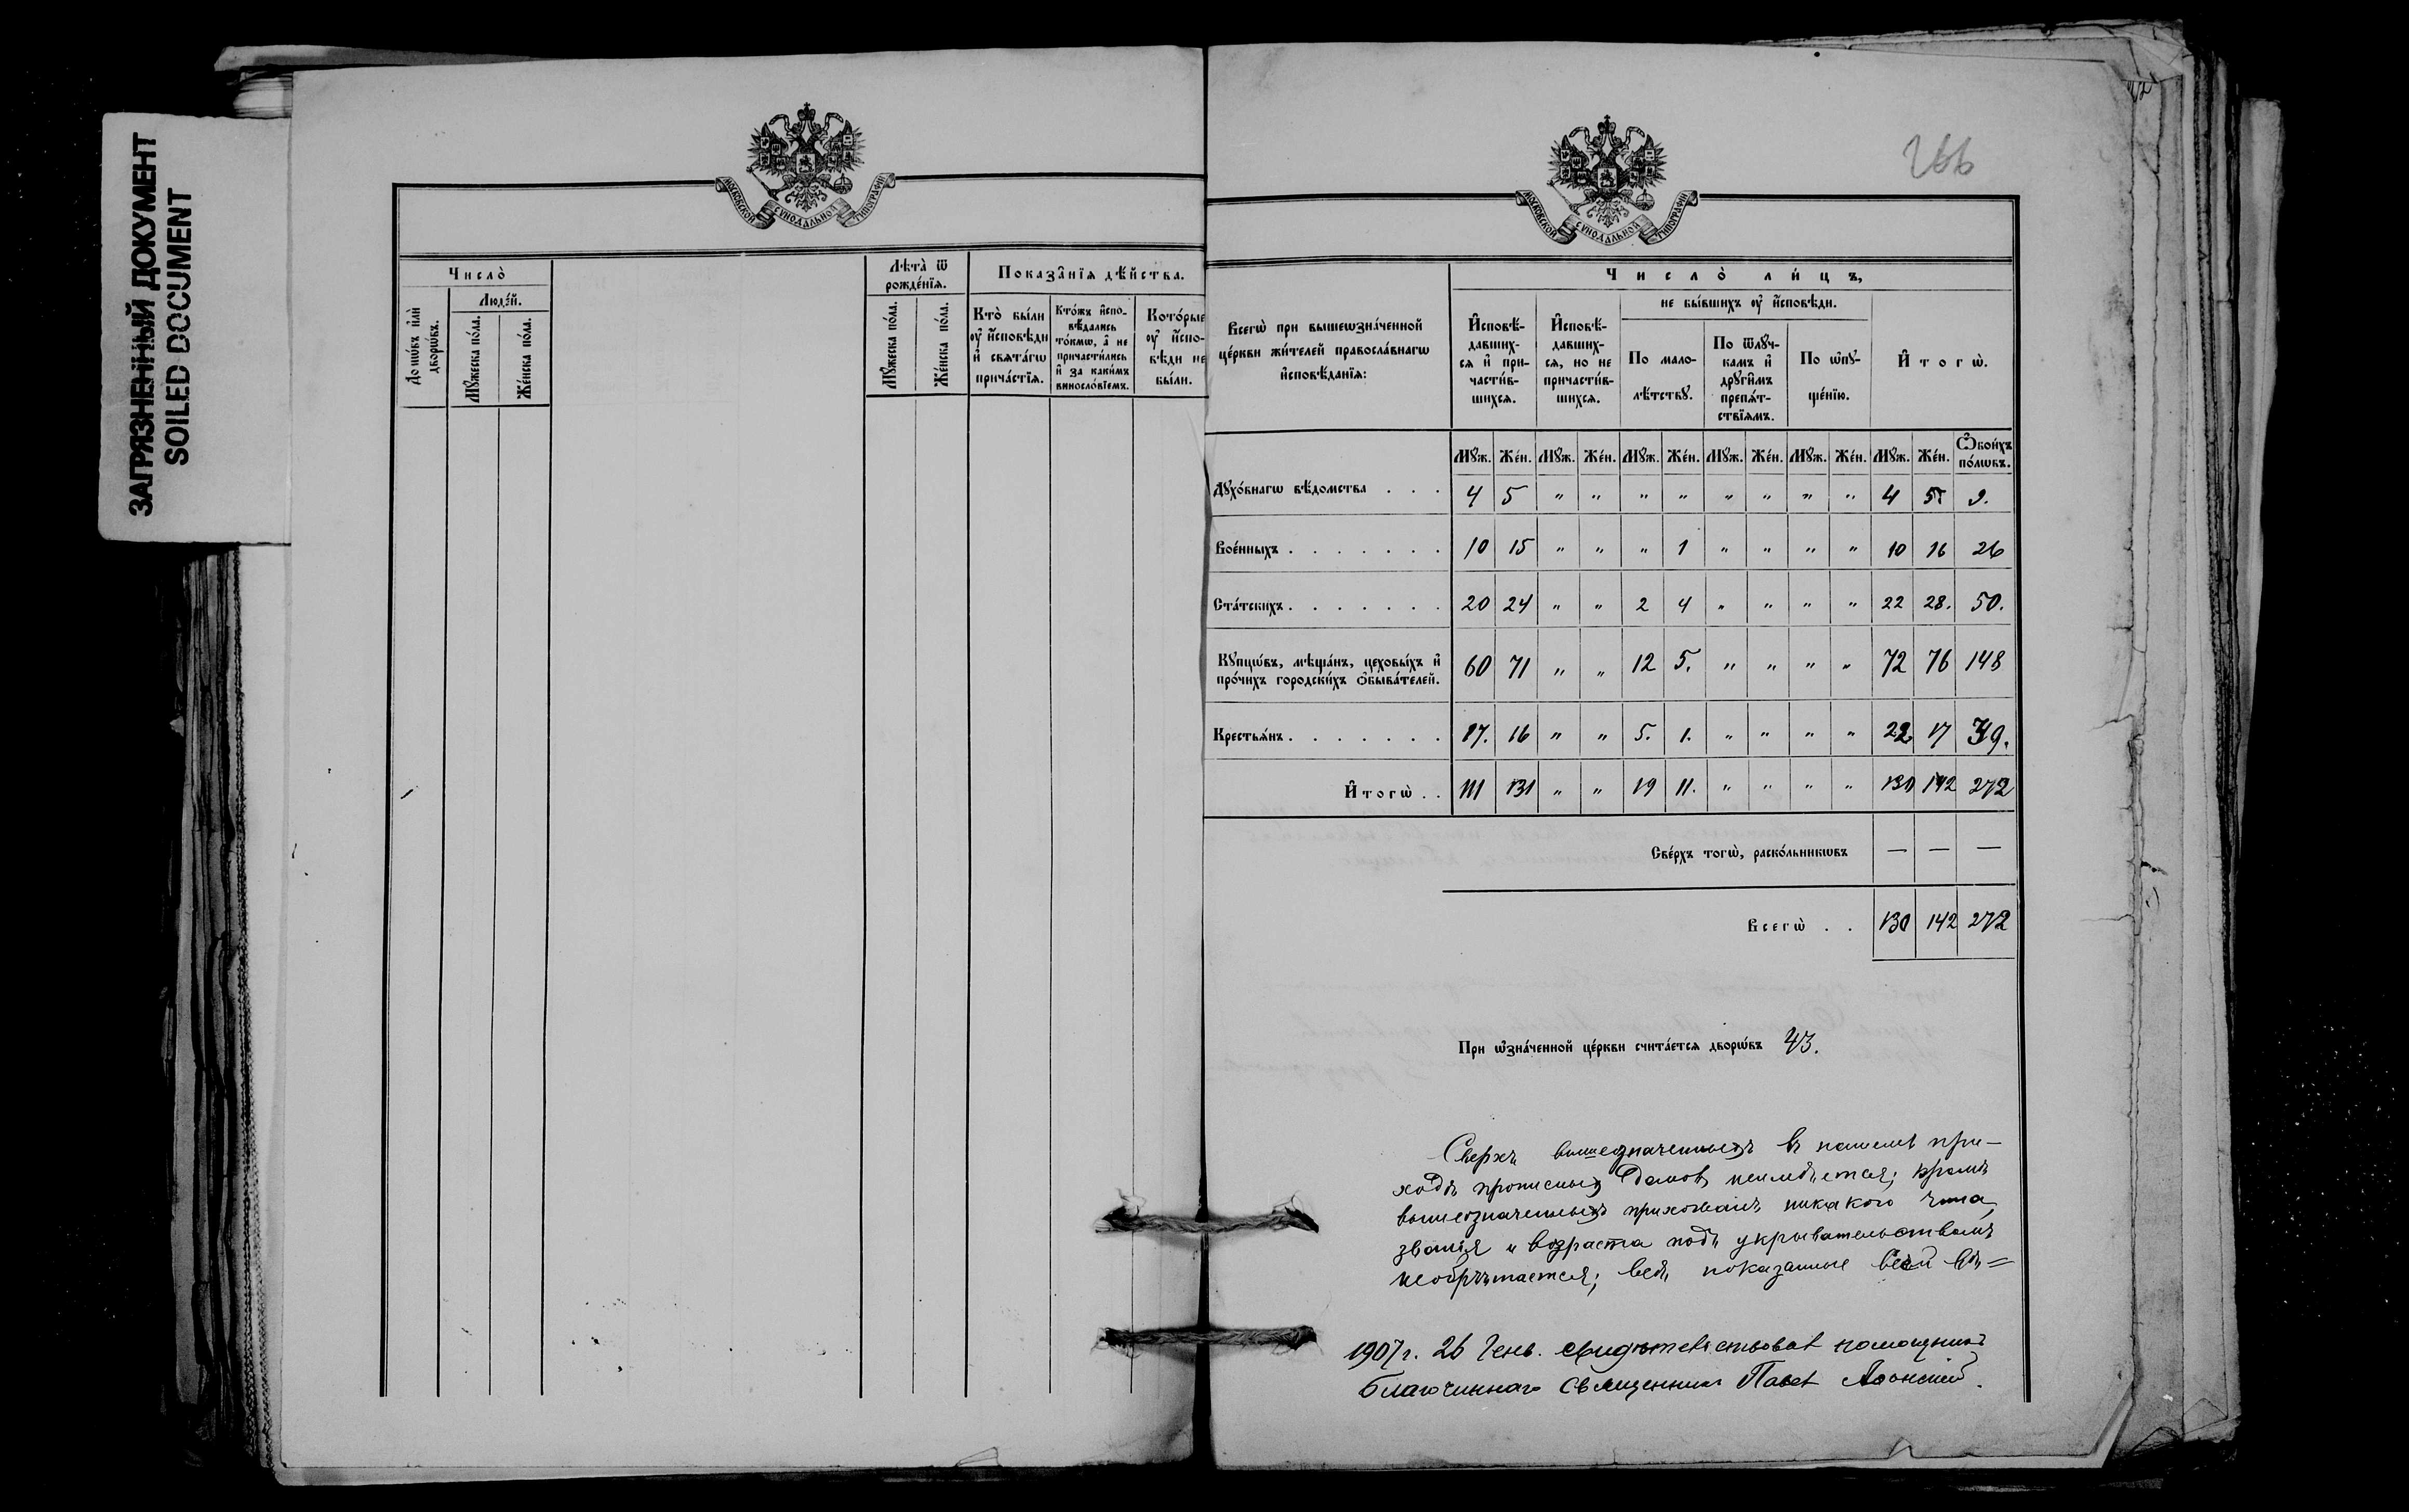 ЗАГРЯЗНЕННЫЙ ДОКУМЕНТ
SOILED DOCUMENT
МОСКОВСКОЙ СѴНОДАЛЬНОЙ ТИПОГРАФІИ
Число̀
Домѡ́въ и҆лѝ дворѡ́въ.
Людє́й.
Мꙋ́жеска по́ла.
Же́нска по́ла.
Лѣта̀ ѿ рожде́нїѧ.
Мꙋ́жеска по́ла.
Же́нска по́ла.
Показа̑нїѧ дѣ́йства.
Кто̀ бы́ли ᲂу҆ и҆́сповѣди и҆ свѧта́гѡ прича́стїѧ.
Кто́жъ и҆спо-
вѣ́дались
то́кмѡ, а҆ не
причасти́лись
и҆ за каки́мъ
виносло́вїемъ.
Кото́рые ᲂу҆ и҆́спо-
вѣди не бы́ли.
266
МОСКОВСКОЙ СѴНОДАЛЬНОЙ ТИПОГРАФІИ
Всегѡ̀ при вышеѡзна́ченной
це́ркви жи́телей правосла́внагѡ
и҆сповѣ́данїѧ:
Число̀ ли́цъ,
И҆сповѣ́-
давших-
сѧ и҆ при-
части́в-
шихсѧ.
И҆сповѣ́-
давших-
сѧ, но не
причасти́в-
шихсѧ.
не бы́вшихъ ᲂу҆ и҆́сповѣди.
По мало-
лѣ́тствꙋ.
По ѿлꙋч-
камъ и҆
дрꙋги̑мъ
препѧ́т-
ствїѧмъ.
По ѡ҆пꙋ-
ще́нїю.
И҆тогѡ̀.
Мꙋж. Же́н. Мꙋж. Же́н. Мꙋж. Же́н. Мꙋж. Же́н. Мꙋж. Же́н. Мꙋж. Же́н. Ѻ҆бои́хъ по́лѡвъ.
Дꙋхо́внагѡ вѣ́домства . . . 4 5 " " " " " " " " 4 5 9.
Вое́нныхъ . . . . . . . 10 15 " " " 1 " " " " 10 16 26
Ста́тскихъ . . . . . . . 20 24 " " 2 4 " " " " 22 28. 50.
Кꙋпцѡ́въ, мѣща́нъ, цеховы́хъ и҆
про́чихъ городски́хъ ѻ҆быва́телей. 60 71 " " 12 5. " " " " 72 76 148
Крестьѧ́нъ . . . . . . . 17. 16 " " 5. 1. " " " " 22 17 39.
И҆тогѡ̀ . . 111 131 " " 19 11. " " " " 130 142 272
Све́рхъ тогѡ̀, раско́льникѡвъ — — —
Всегѡ̀ . . 130 142 272
При ѡ҆зна́ченной це́ркви счита́етсѧ дворѡ́въ 43.
Сверхъ вышеозначенныхъ въ нашемъ при-
ходѣ прописныхъ домовъ неимѣется; кромѣ
вышеозначенныхъ прихожанъ никакого чина,
званія и возраста подъ укрывательствомъ
необрѣтается; всѣ показанные въ=
1907 г. 26 Генв. свидѣтельствовалъ помощникъ
благочиннаго священникъ Павелъ